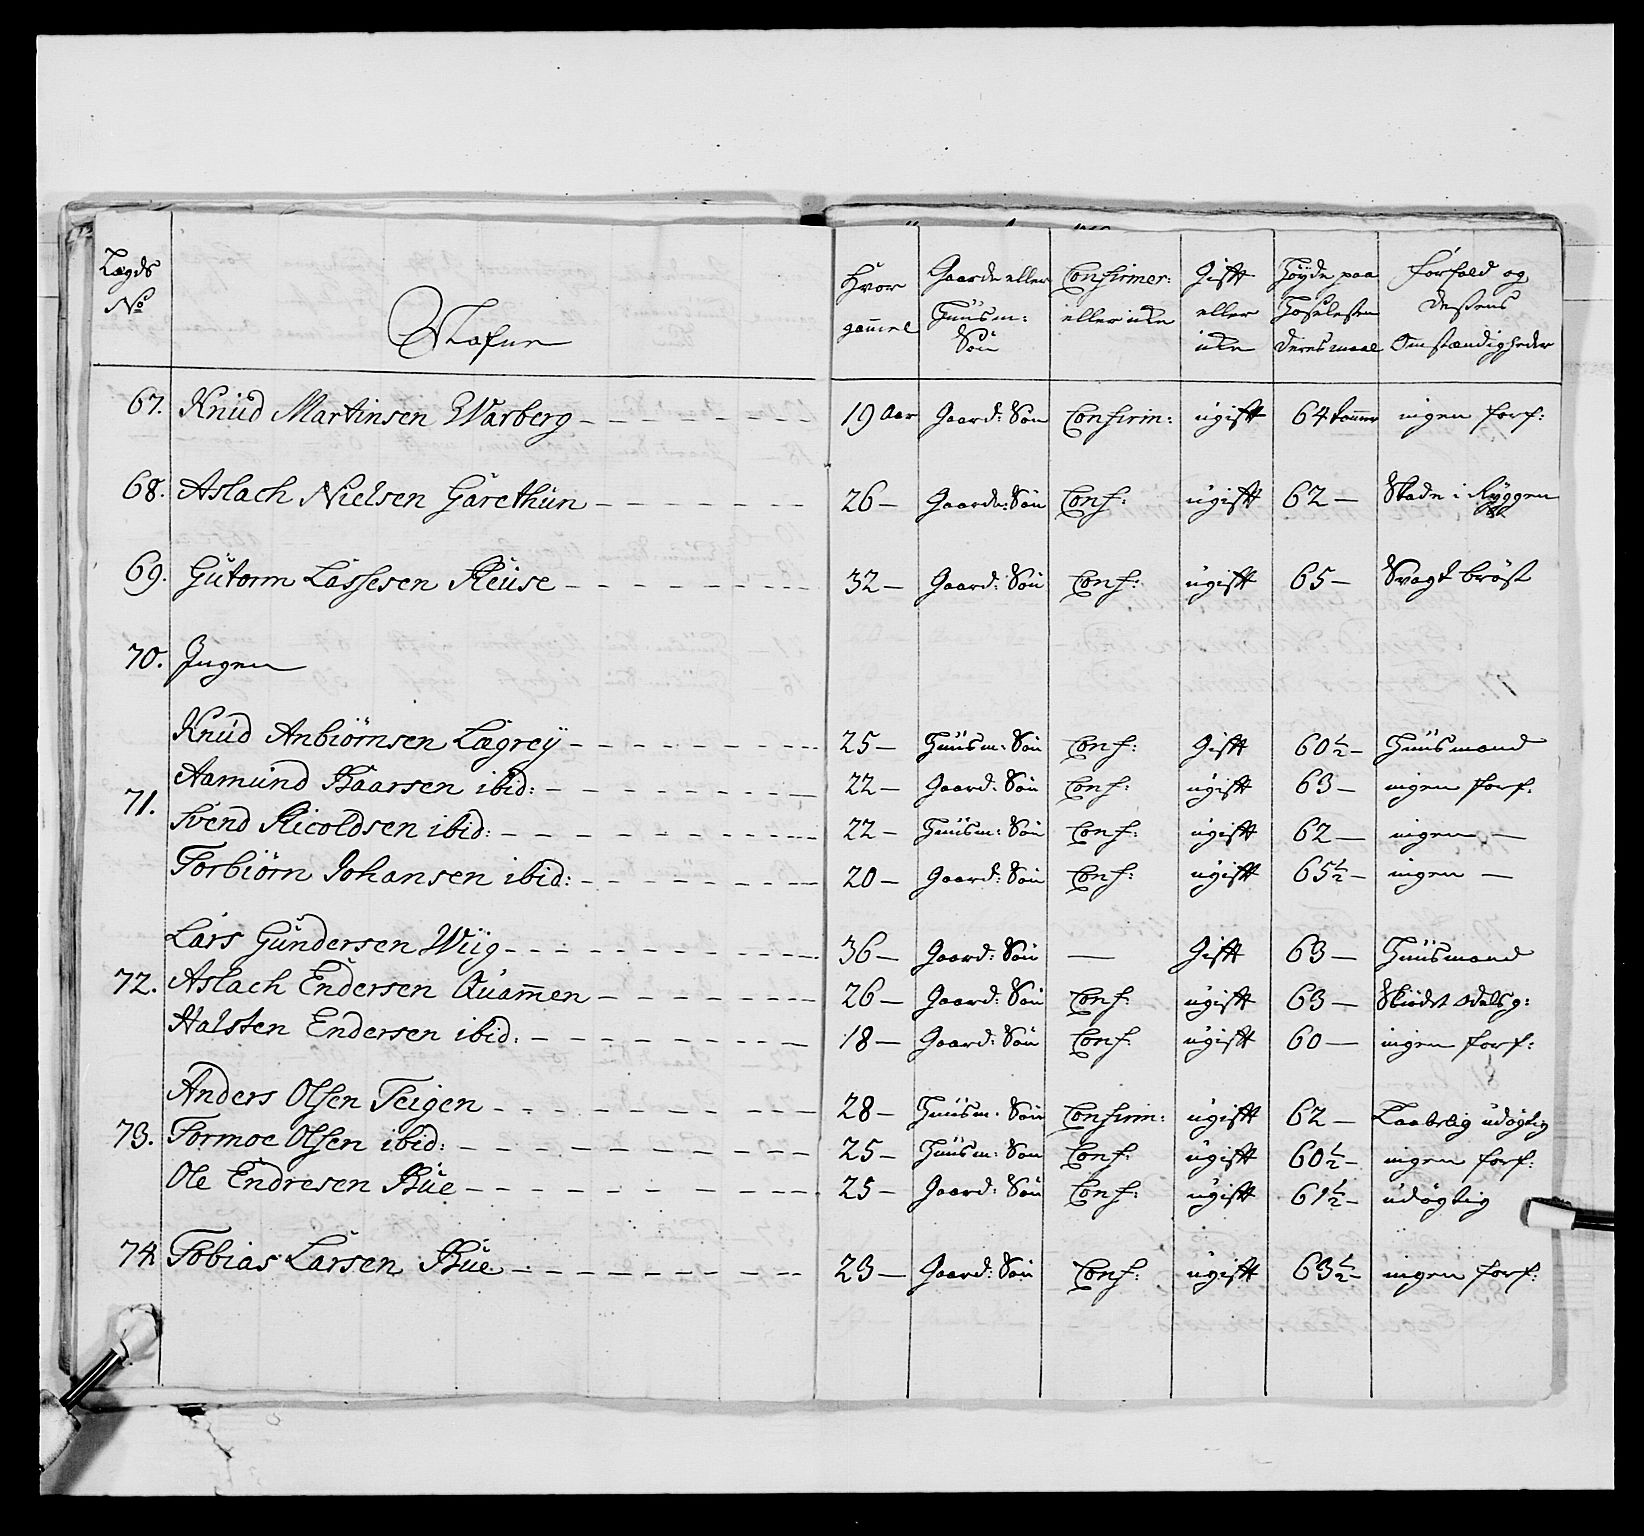 Lægds No Nafne Hvor gammel Gaarde eller Huusm: Søn Confirmer: eller iche Gift eller iche Høyde paa Hoselesten deres maal Forfald og deßens Omstændigheder
67. Knüd Martinsen Warberg 19 Aar Gaard: Søn Confirm: ugift 64 Tomer ingen forf:
68. Aslach Nielsen Garethün 26 Gaarde: Søn Conf: ugift 62 Skade i Ryggen
69. Gütorm Lassesen Reüse 32 Gaard: Søn Conf: ugift 65 Svagt brøst
70. Ingen
Knüd Anbiørnsen Lægreÿ 25 Huusm: Søn Conf: Gift 60½ Huusmand
Aamünd Baarsen ibid: 22 Gaard: Søn Conf: ugift 63 ingen forf:
71.
Svend Ricoldsen ibid: 22 Huusm: Søn Conf: ugift 62 ingen —
Torbiørn Johansen ibid: 20 Gaard: Søn Conf: ugift 65½ ingen —
Lars Gündersen Wiig 36 Gaard: Søn — Gift 63 Huusmand
72. Aslach Endersen Quamen 26 Gaard: Søn Conf: ugift 63 Skiødet Odelsg:
Halsten Endersen ibid: 18 Gaard: Søn Conf: ugift 60 ingen forf:
Anders Olsen Teigen 28 Huusm: Søn Confirm: ugift 62 udøgtig
73. Tormoe Olsen ibid: 25 Huusm: Søn Conf: ugift 60½ ingen forf:
Ole Endresen Büe 25 Gaard: Søn Conf: ugift 61½ udøgtig
74. Tobias Larsen Büe 23 Gaard: Søn Conf: ugift 63½ ingen forf: